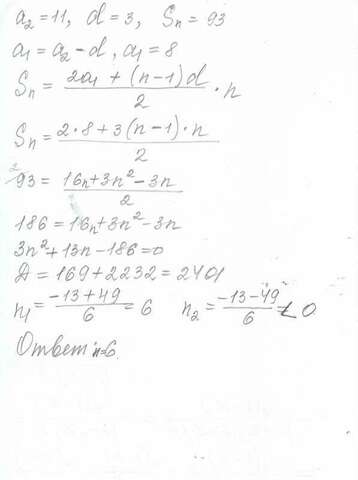 a₂ = 11, d = 3, Sₙ = 93
a₁ = a₂ - d, a₁ = 8
Sₙ = (2a₁ + (n-1)d)/2 · n
Sₙ = (2·8 + 3(n-1)·n)/2
²⁄93 = (16n + 3n² - 3n)/2
186 = 16n + 3n² - 3n
3n² + 13n - 186 = 0
Д = 169 + 2232 = 2401
n₁ = (-13 + 49)/6 = 6 n₂ = (-13 - 49)/6 < 0
Ответ n=6.